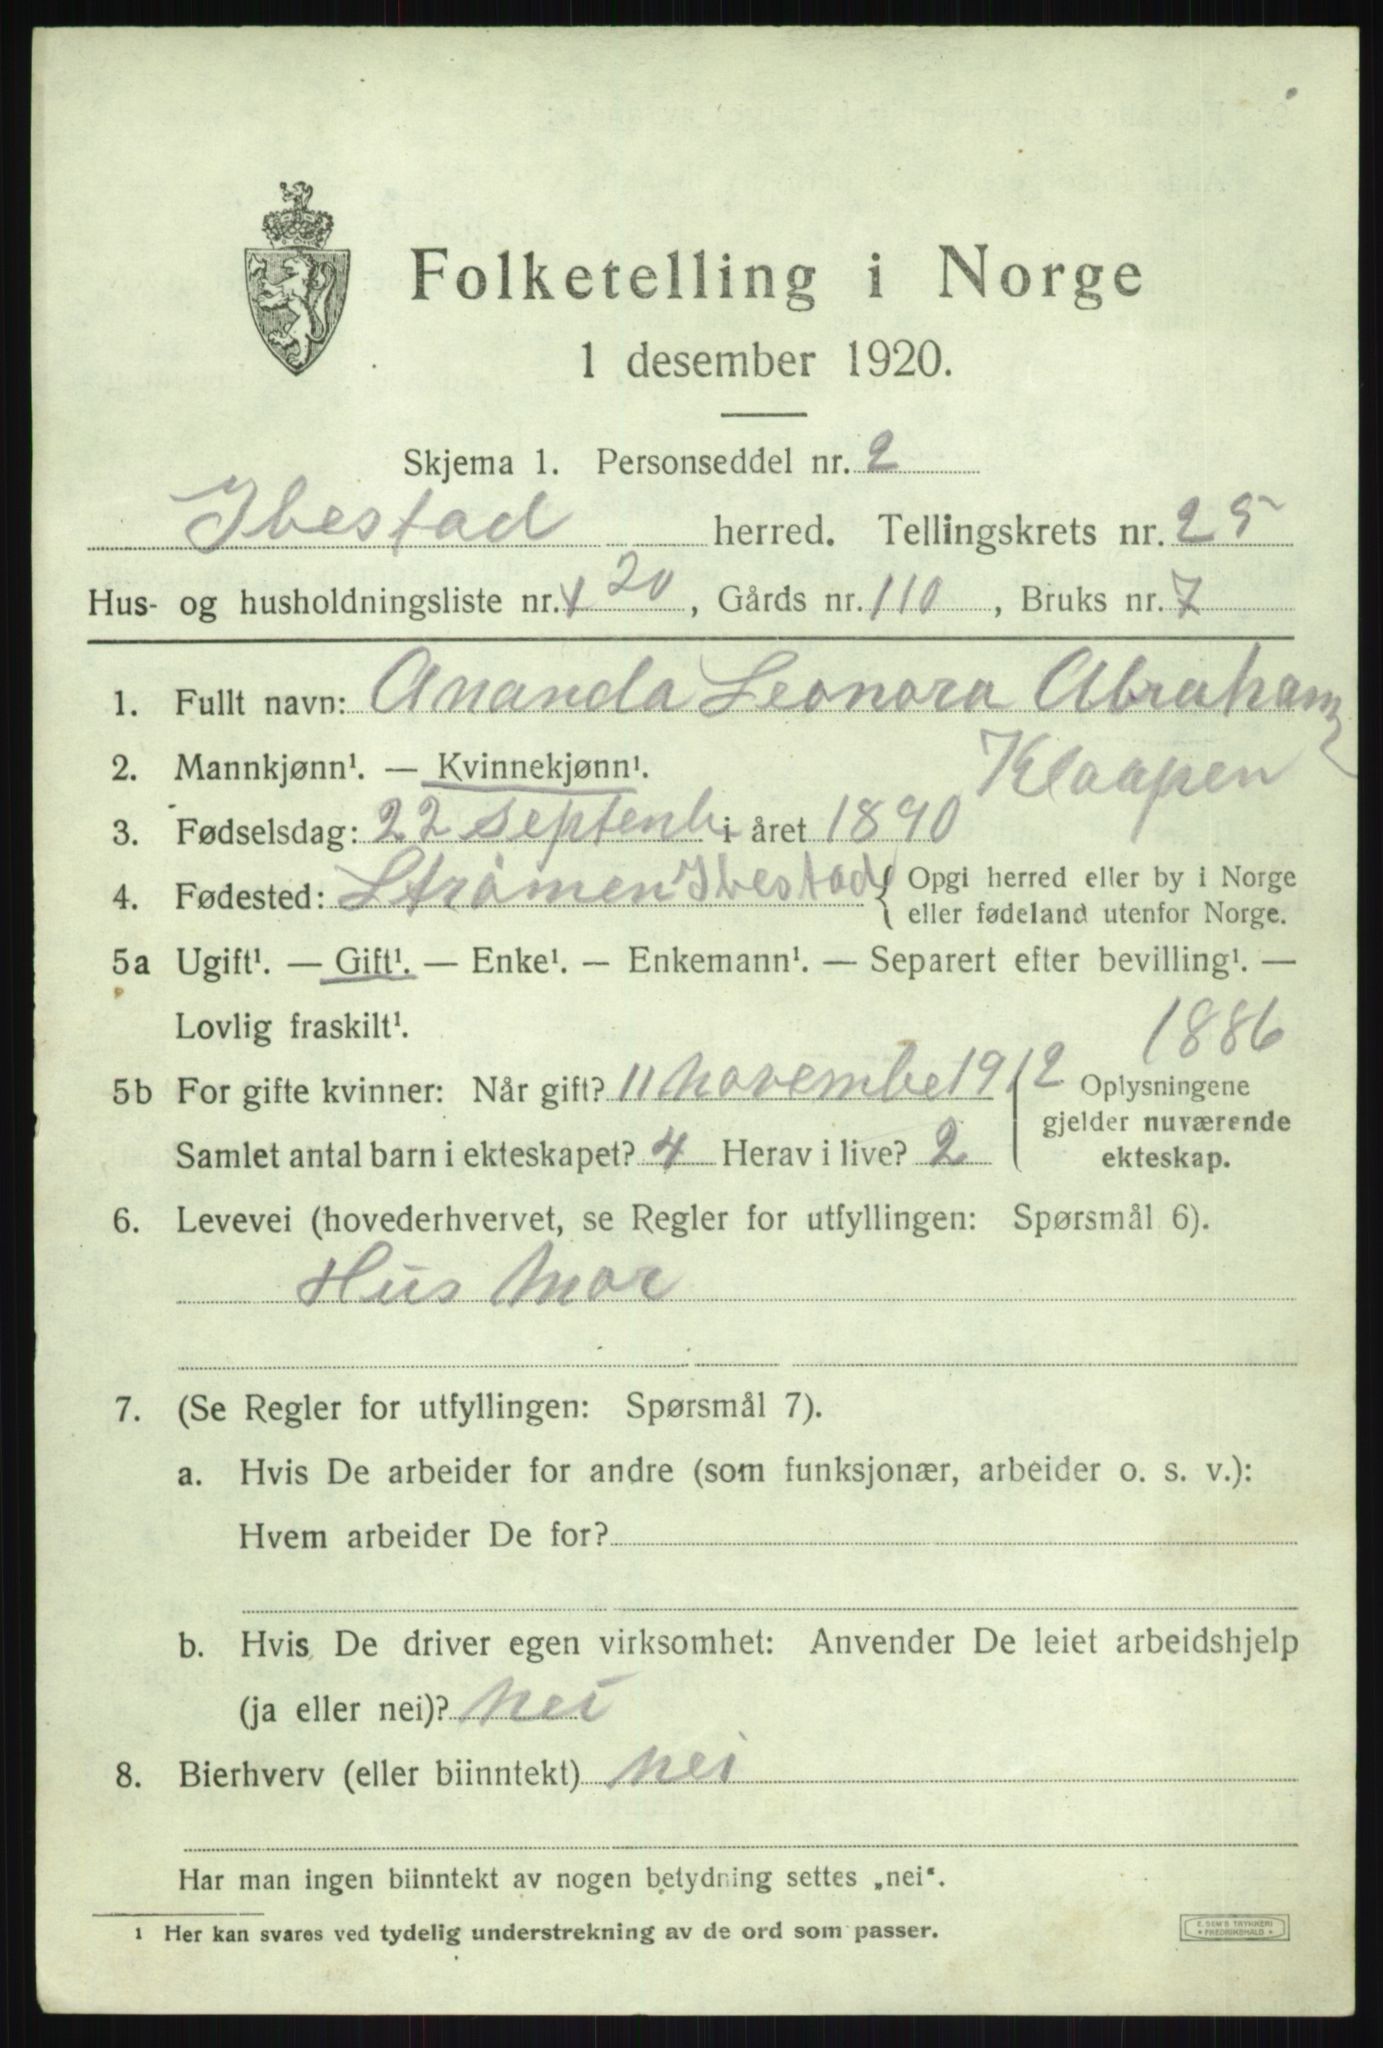 Folketelling i Norge
1 desember 1920.
Skjema 1. Personseddel nr. 2
Ibestad herred. Tellingskrets nr. 25
Hus- og husholdningsliste nr. 20, Gårds nr. 110, Bruks nr. 7
1. Fullt navn: Ananda Leonora Abraham
2. Mannkjønn¹. — Kvinnekjønn¹. Klaapen
3. Fødselsdag: 22 septemb i året 1890
4. Fødested: Strømen Ibestad { Opgi herred eller by i Norge
eller fødeland utenfor Norge.
5a Ugift¹. — Gift¹. — Enke¹. — Enkemann¹. — Separert efter bevilling¹. —
Lovlig fraskilt¹. 1886
5b For gifte kvinner: Når gift? 11 novembe 1912 Oplysningene
gjelder nuværende
Samlet antal barn i ekteskapet? 4 Herav i live? 2 ekteskap.
6. Levevei (hovederhvervet, se Regler for utfyllingen: Spørsmål 6).
Hus mor
7. (Se Regler for utfyllingen: Spørsmål 7).
a. Hvis De arbeider for andre (som funksjonær, arbeider o. s. v.):
Hvem arbeider De for?
b. Hvis De driver egen virksomhet: Anvender De leiet arbeidshjelp
(ja eller nei)? nei
8. Bierhverv (eller biinntekt) nei
Har man ingen biinntekt av nogen betydning settes „nei“.
¹ Her kan svares ved tydelig understrekning av de ord som passer.
E. SEM'S TRYKKERI
* FREDRIKSHALD *